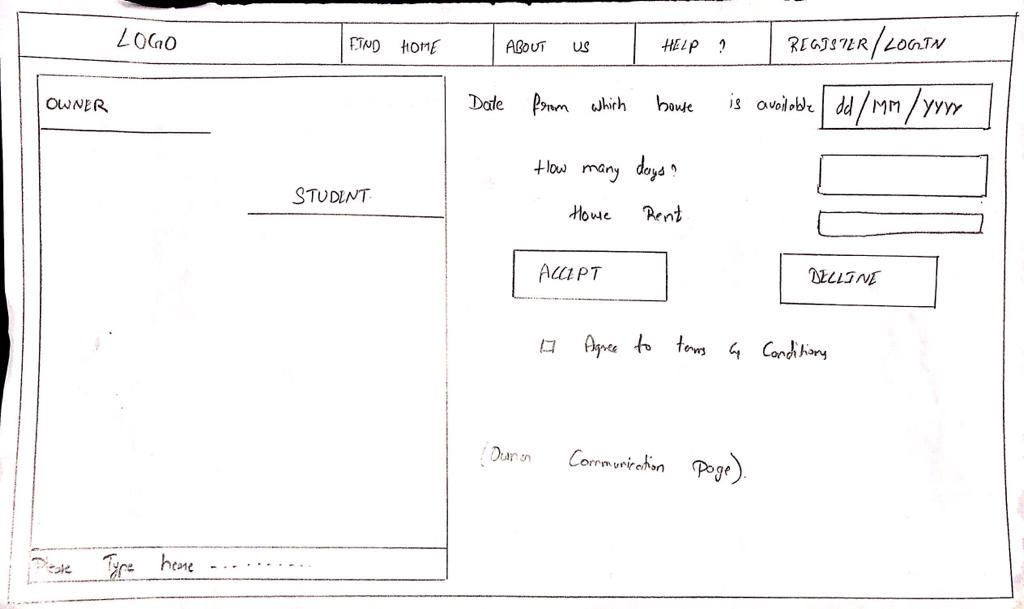 LOGO
FIND HOME
ABOUT US
HELP ?
REGISTER/LOGIN
OWNER
STUDENT
Date from which house is available
dd/MM/YYYY
How many days?
House Rent
ACCEPT
DECLINE
Agree to terms & Conditions
(Owner Communication page).
Please Type here ..........